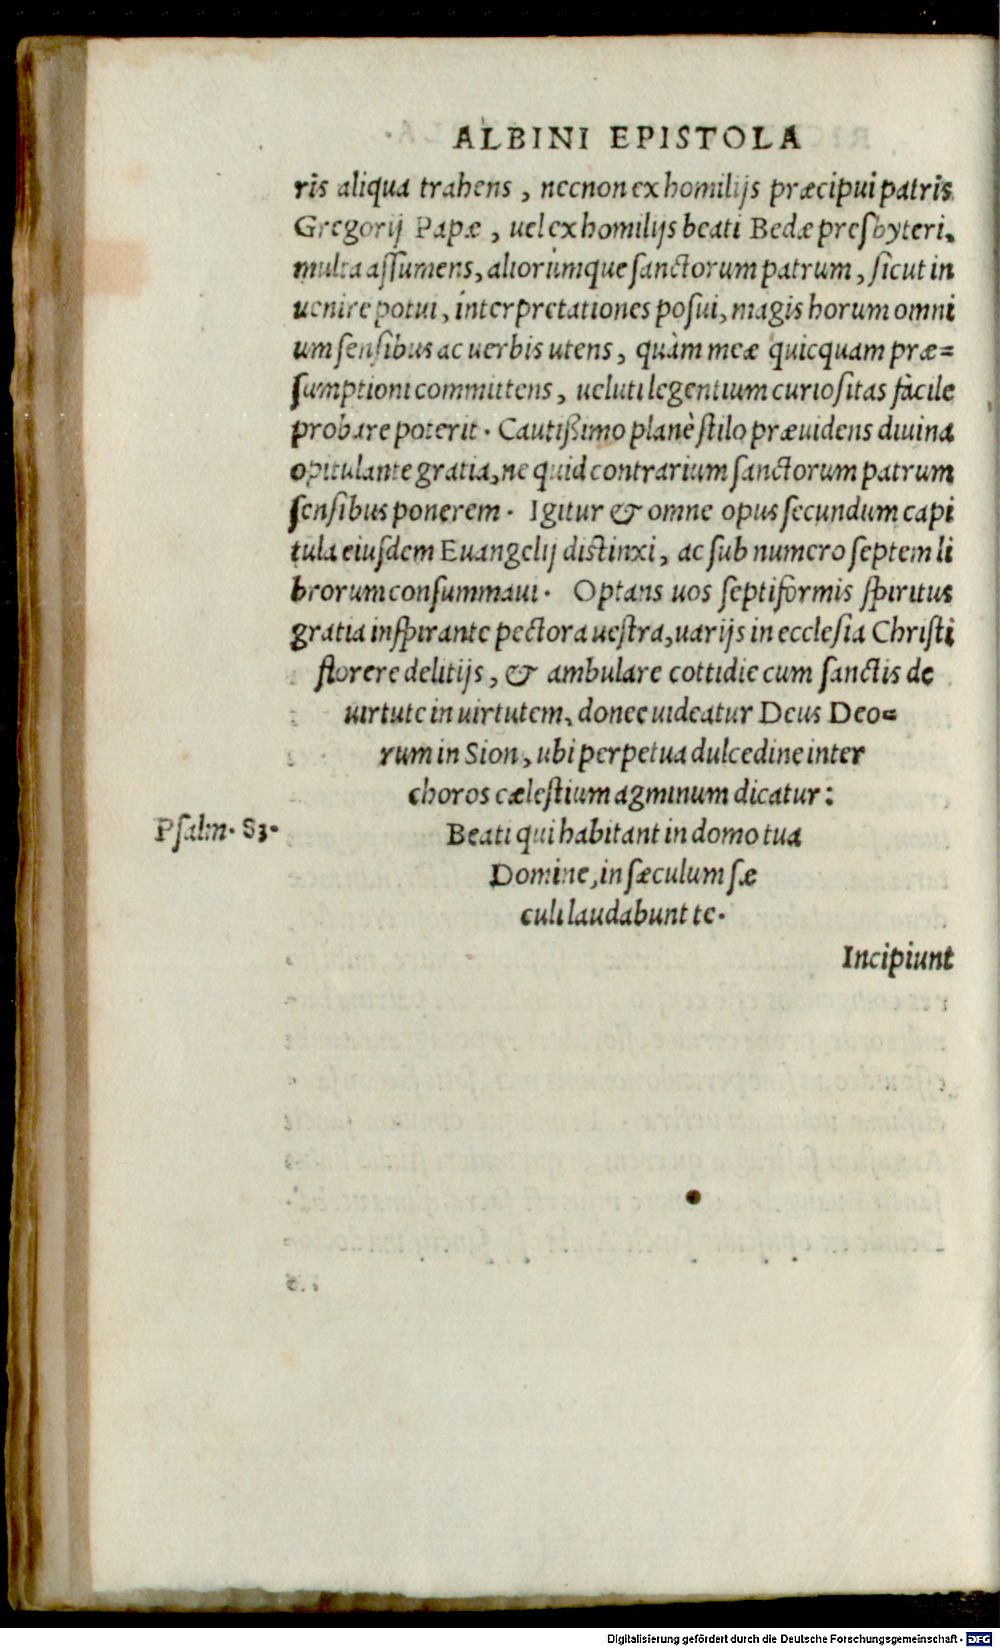 ALBINI EPISTOLA
ris aliqua trahens, necnon ex homilijs præcipui patris
Gregorij Papæ, uel ex homilijs beati Bedæ presbyteri,
multa assumens, aliorúmque sanctorum patrum, sicut in
uenire potui, interpretationes posui, magis horum omni
um sensibus ac uerbis utens, quàm meæ quicquam præ=
sumptioni committens, ueluti legentium curiositas fàcile
probare poterit. Cautißimo planè stilo præuidens diuina
opitulante gratia, ne quid contrarium sanctorum patrum
sensibus ponerem. Igitur & omne opus secundum capi
tula eiusdem Euangelij distinxi, ac sub numero septem li
brorum consummaui. Optans uos septiformis spiritus
gratia inspirante pectora uestra, uarijs in ecclesia Christi
florere delitijs, & ambulare cottidie cum sanctis de
uirtute in uirtutem, donec uideatur Deus Deo=
rum in Sion, ubi perpetua dulcedine inter
choros cælestium agminum dicatur:
Psalm. 83.
Beati qui habitant in domo tua
Domine, in sæculum sæ
culi laudabunt te.
Incipiunt
Digitalisierung gefördert durch die Deutsche Forschungsgemeinschaft - DFG